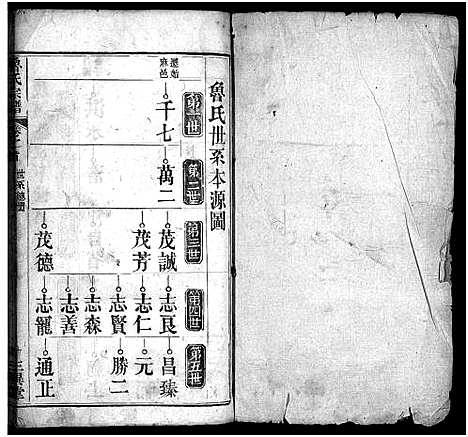 魯氏世系本源圖
第一世
第二世
第三世
第四世
第五世
遷始
麻邑
千七
萬二
茂誠
茂芳
茂德
志良
志仁
志賢
志森
志善
志龍
昌臻
元一
勝二
通正
魯氏宗譜
世系總圖
三異堂